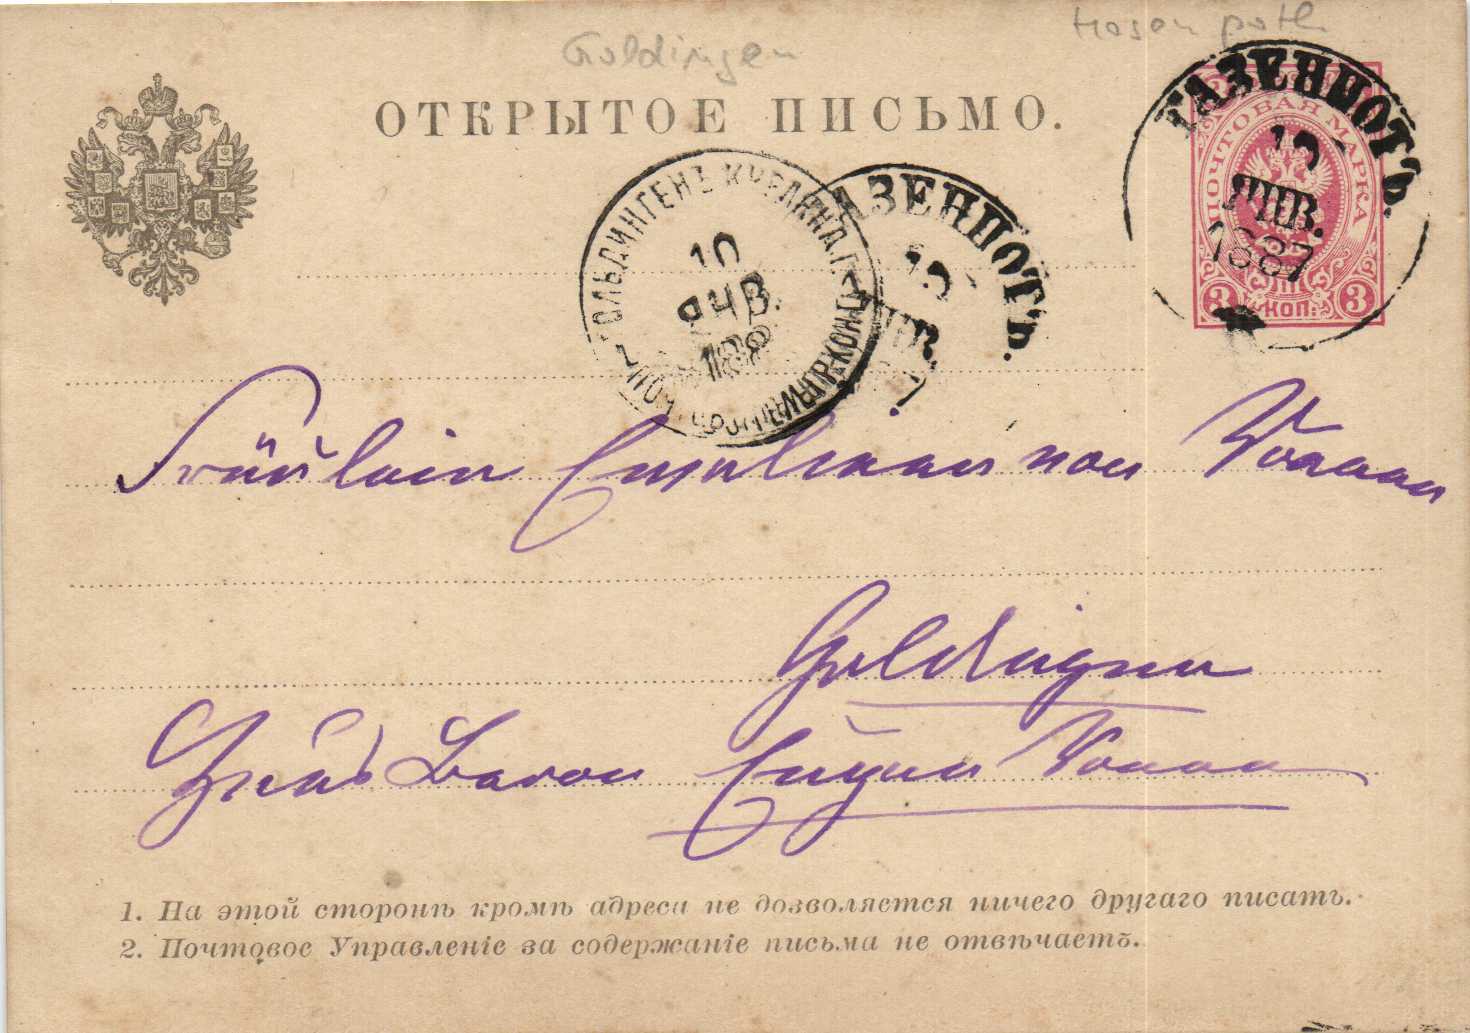 Goldingen
Hasenpoth
ОТКРЫТОЕ ПИСЬМО.
ГАЗЕНПОТЪ.
10
ЯНВ.
1887
ПОЧТОВАЯ МАРКА
3 КОП: 3
ГОЛЬДИНГЕНЪ КУРЛЯНД. Г.
10
ЯНВ.
188
ПОЧ.
КОН.
АЗЕНПОТЪ.
10
ЯНВ.
7
Fräulein von
Goldingen
Baron Eugen
1. На этой сторонѣ кромѣ адреса не дозволяется ничего другаго писать.
2. Почтовое Управленіе за содержаніе письма не отвѣчаетъ.